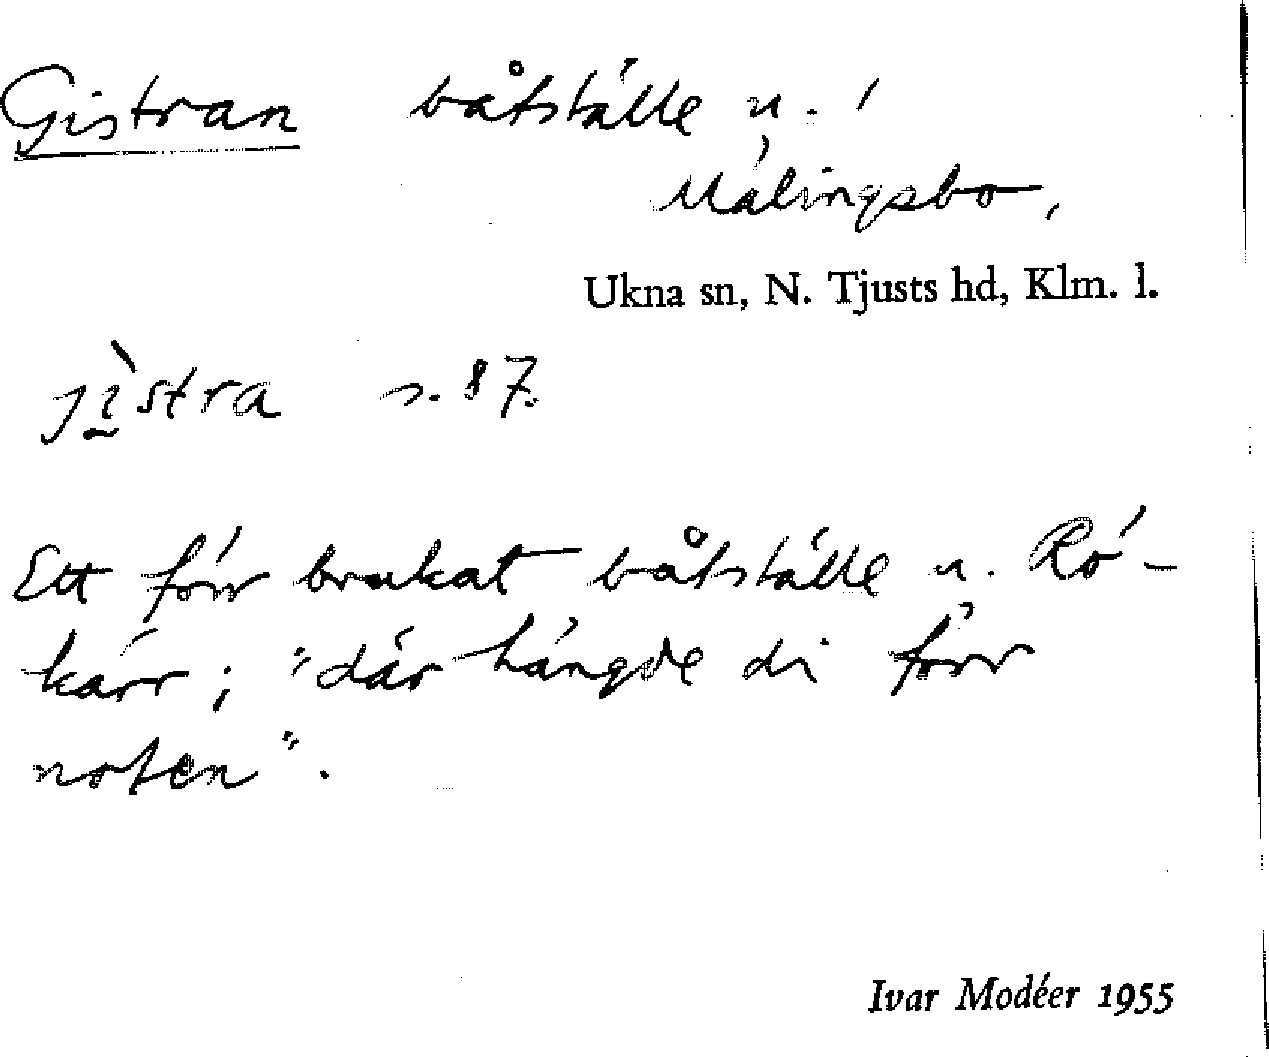 Gistran båtställe u. 
Mälingsbo,
Ukna sn, N. Tjusts hd, Klm. l.
jı̀stra s. 87.
Ett förr brukat båtställe u. Rö-
kärr; "där hängde di förr
noten".
Ivar Modéer 1955